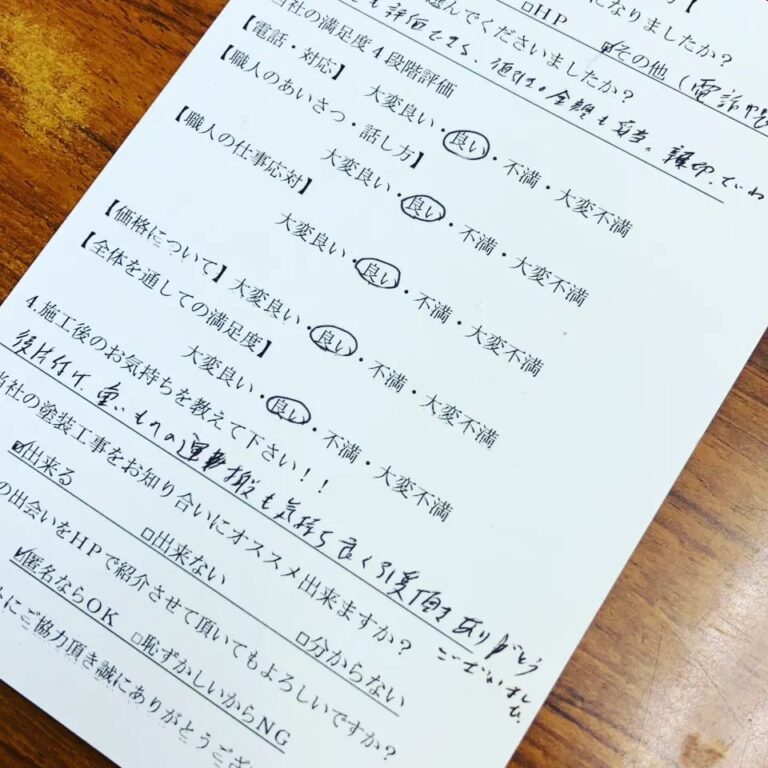 になりましたか?】
□HP ☑その他（電話帳
選んでくださいましたか?
も評価できる、他社の金額も妥当。
当社の満足度4段階評価
【電話・対応】 大変良い・良い・不満・大変不満
【職人のあいさつ・話し方】
大変良い・良い・不満・大変不満
【職人の仕事応対】
大変良い・良い・不満・大変不満
【価格について】大変良い・良い・不満・大変不満
【全体を通しての満足度】
大変良い・良い・不満・大変不満
4.施工後のお気持ちを教えて下さい!!
後片付け、重いものの運搬も気持ち良く引受頂きありがとう
ございました。
当社の塗装工事をお知り合いにオススメ出来ますか?
☑出来る □出来ない □分からない
の出会いをHPで紹介させて頂いてもよろしいですか?
☑匿名ならOK □恥ずかしいからNG
にご協力頂き誠にありがとうござ